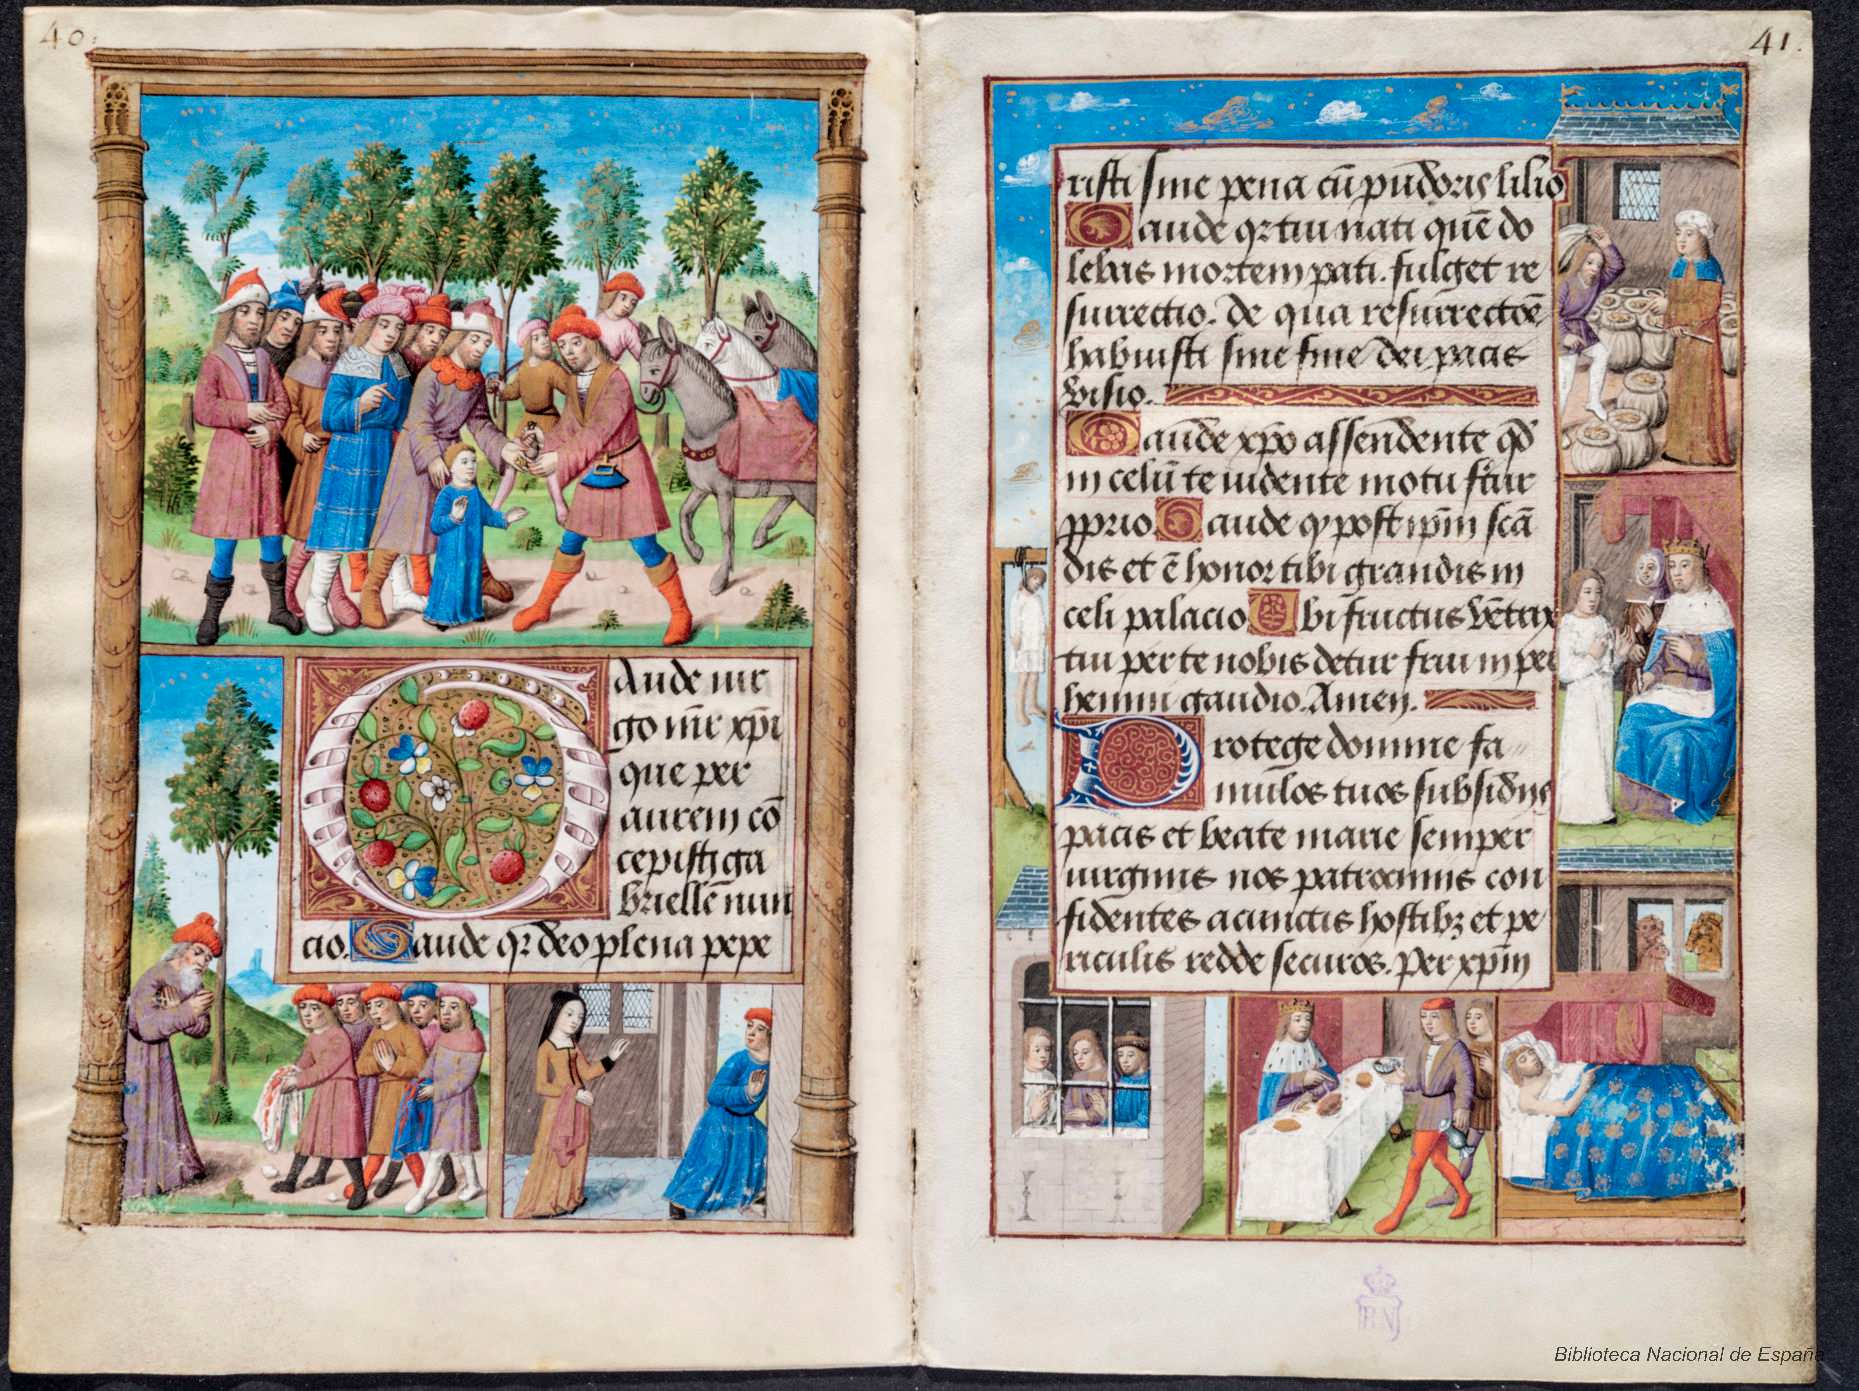 40.
Aude vir
go mr̄ xp̄i
que per
aurem cō
cepisti ga
briellē nun
cio. Gaude qr deo plena pepe
41.
risti sine pena cū pudoris lilio
Gaude qr tui nati quē do
lebas mortem pati. fulget re
surrectio. de qua resurrectōe
habuisti sine fine dei pacis
visio.
Gaude xp̄o assendente qd̄
in celū te vidente motu fr̄tur
pprio. Gaude qp post ip̄m scā
dis et ē honor tibi grandis in
celi palacio Vbi fructus vētris
tui per te nobis detur frui in per
henni gaudio. Amen.
Protege domine fa
mulos tuos subsidijs
pacis et beate marie semper
virginis nos patrociniis con
fidentes a cunctis hostibz et pe
riculis redde securos. Per xp̄m
BN
Biblioteca Nacional de España